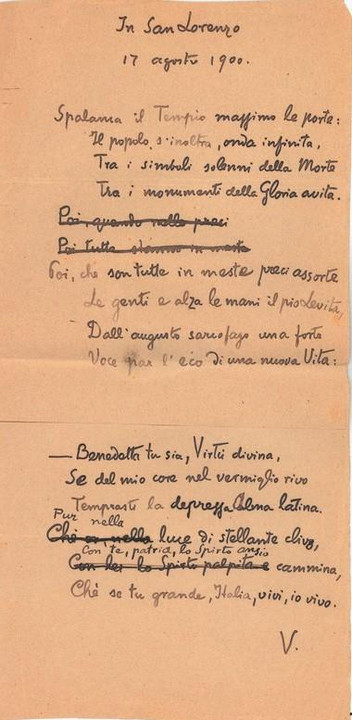 In San Lorenzo
17 agosto 1900.
Spalanca il Tempio massimo le porte:
Il popolo s'inoltra, onda infinita,
Tra i simboli solenni della Morte
Tra i monumenti della Gloria avita.
Poi, quando nelle preci
Poi tutte stanno in meste
Poi, chè son tutte in meste preci assorte
Le genti e alza le mani il pio Levita,
Dall'augusto sarcofago una forte
Voce par l'eco di una nuova Vita:
— Benedetta tu sia, Virtù divina,
Se del mio core nel vermiglio rivo
Temprasti la depressa Alma latina.
Pur nella
Chè or nella luce di stellante clivo,
Con te, patria, lo Spirto ansio
Con lei lo Spirto palpita e cammina,
Chè se tu grande, Italia, vivi, io vivo.
V.